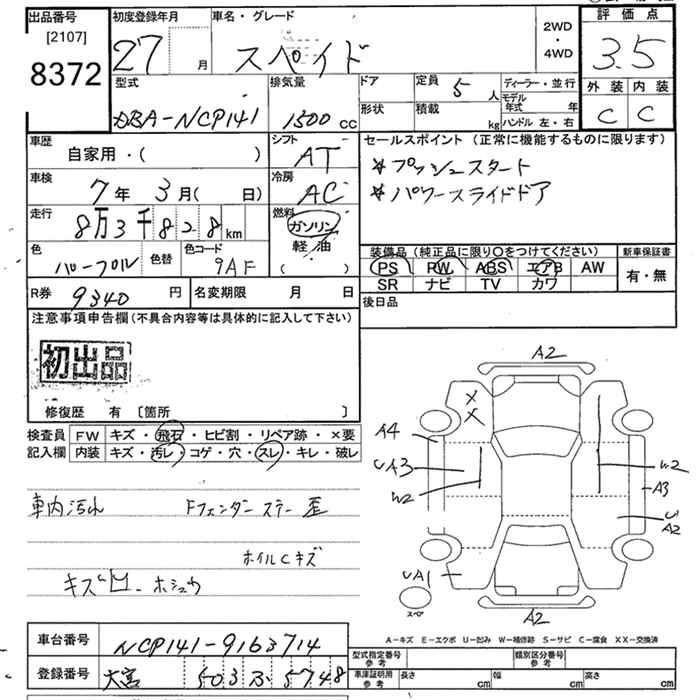 出品番号 初度登録年月 車名・グレード 2WD・4WD 評価点
[2107]
8372
27 月 スペイド 3.5
型式 排気量 ドア 定員 5人 ディーラー・並行 外装 内装
DBA-NCP141 1500cc 形状 積載 kg モデル年式 年 C C
ハンドル 左・右
車歴 シフト セールスポイント (正常に機能するものに限ります)
自家用・( ) AT *プッシュスタート
車検 冷房 *パワースライドドア
7年 3月( 日) AC
走行 燃料
8万3千828km ガソリン
軽油
( )
色 色替 色コード 装備品 (純正品に限り〇をつけてください) 新車保証書
パープル 9AF PS PW ABS エアB AW 有・無
SR ナビ TV カワ
R券 9340円 名変期限 月 日 後日品
注意事項申告欄(不具合内容等は具体的に記入して下さい)
初出品
修復歴 有 [箇所 ]
検査員 FW キズ・飛石・ヒビ割・リペア跡・×要
記入欄 内装 キズ・汚レ・コゲ・穴・スレ・キレ・破レ
車内汚れ Fフェンダーステー歪
ホイルCキズ
キズ凹ホシュウ
A2
X
X
A4
UA3
W2
W2
A3
U
A2
UA1
スペア
A2
A-キズ E-エクボ U-凹み W-補修跡 S-サビ C-腐食 XX-交換済
車台番号 NCP141-9163714
型式指定番号 参考 類別区分番号 参考
登録番号 大宮 503 ふ 5748
車庫証明用 参考 長さ cm 幅 cm 高さ cm